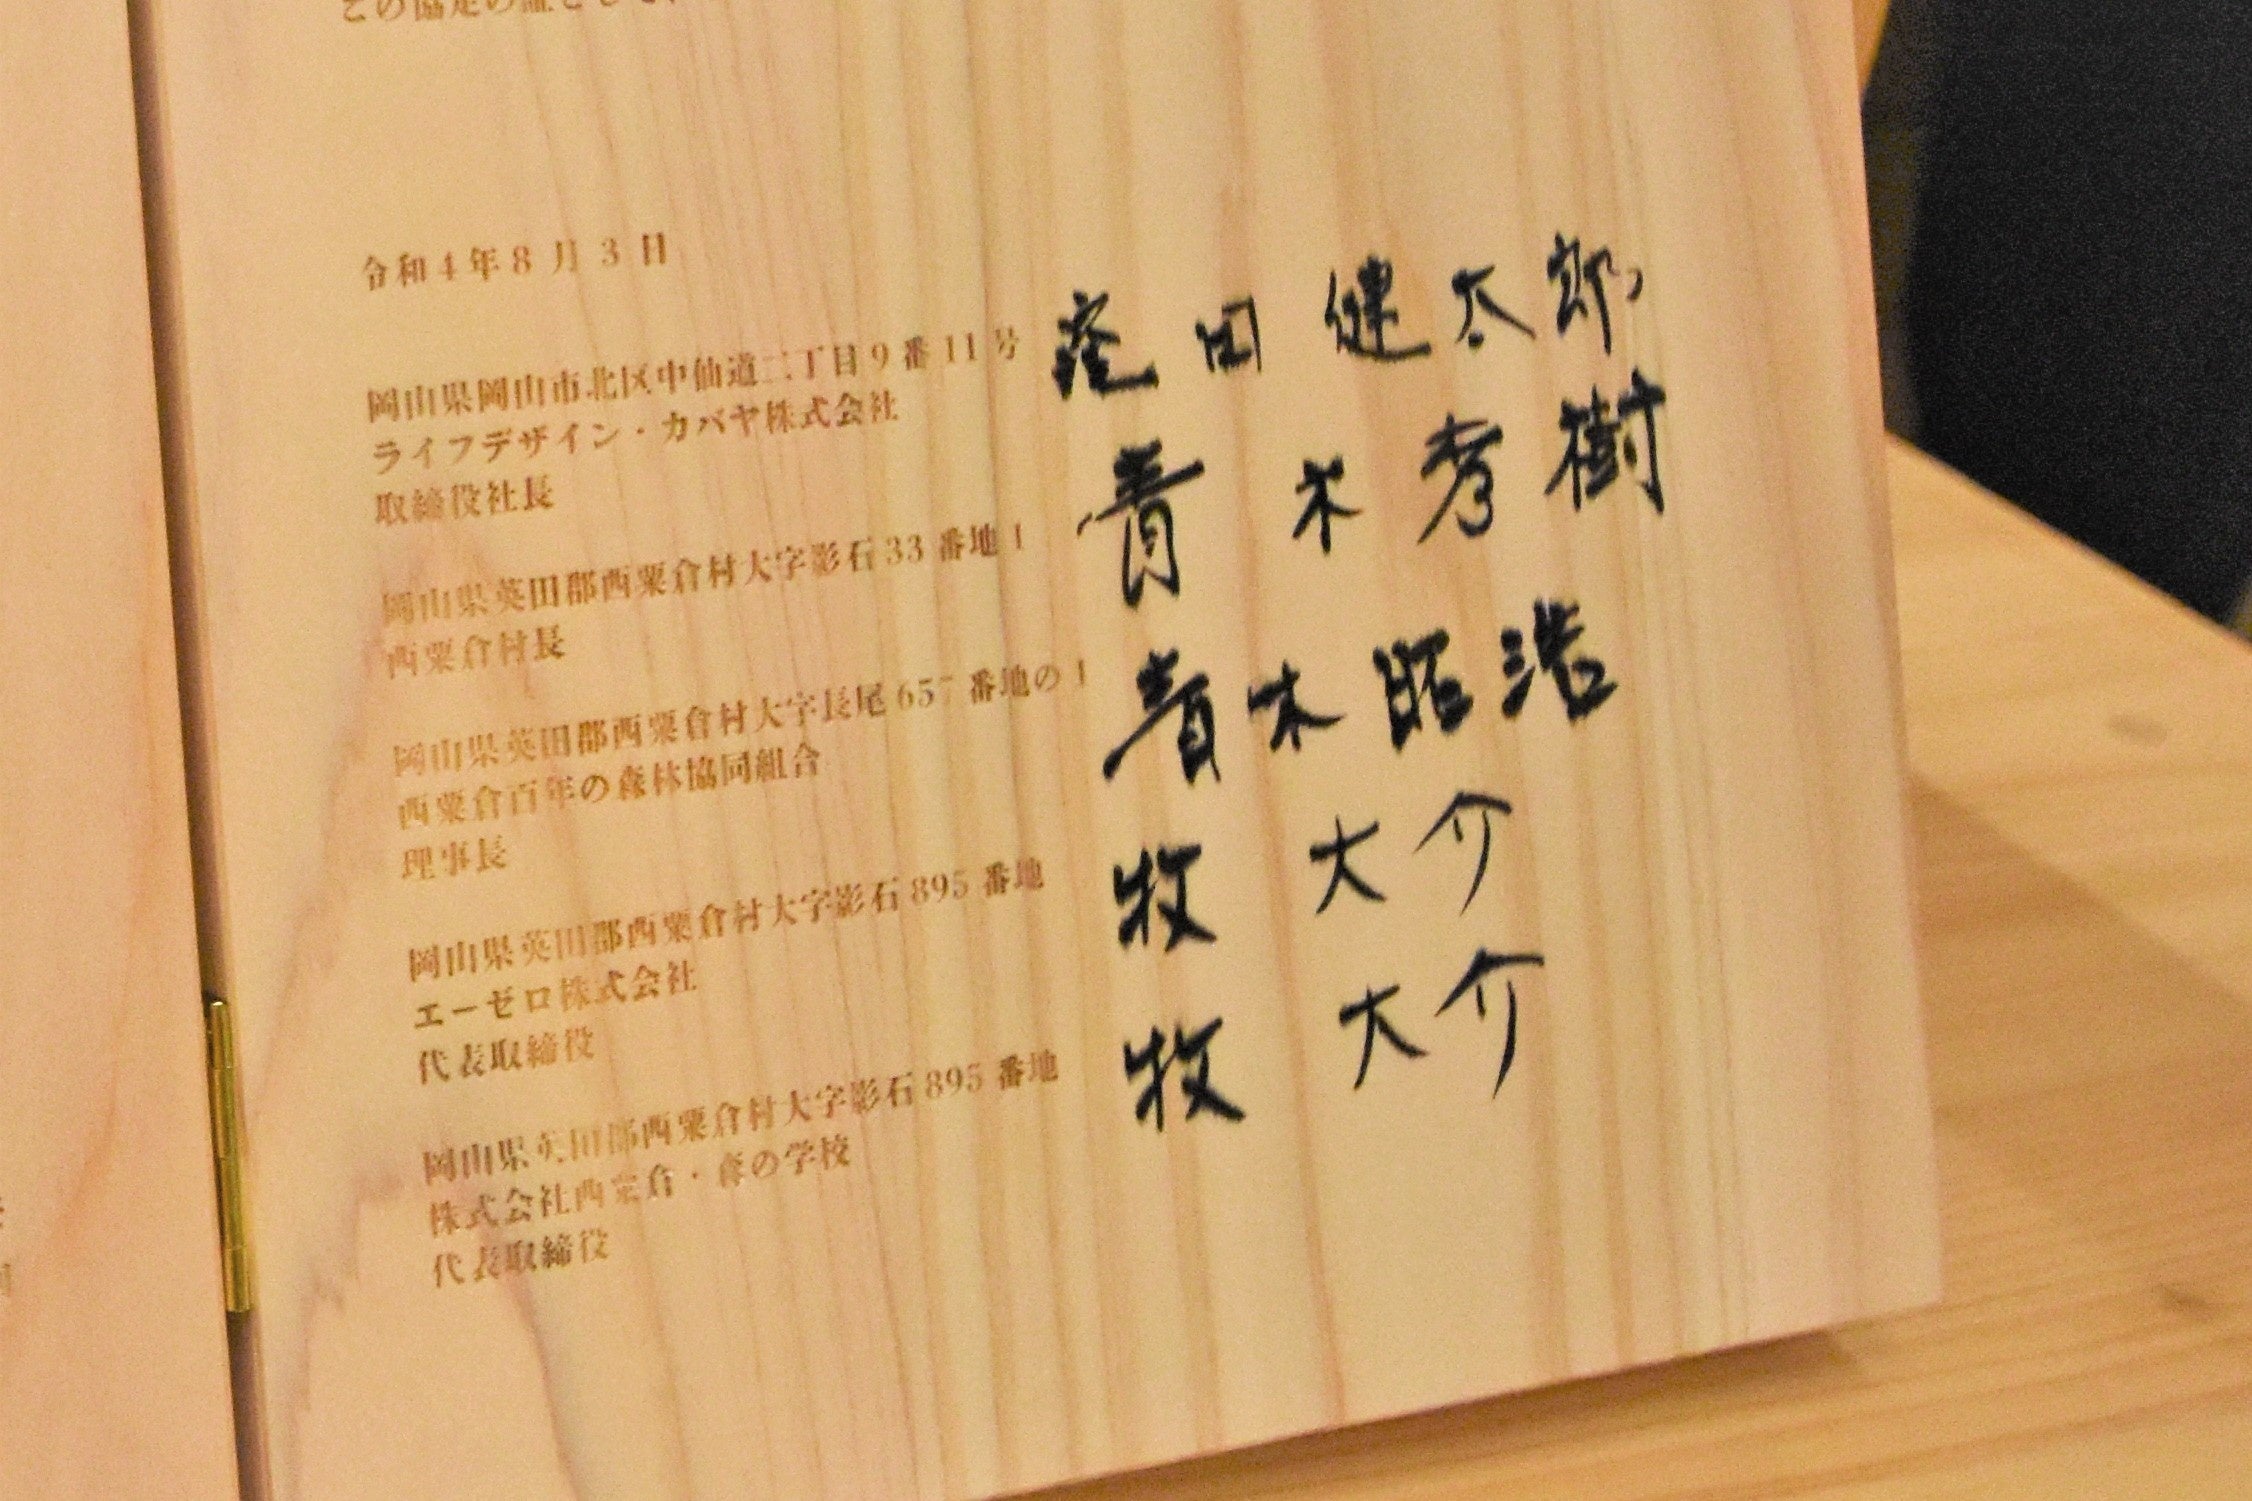 この協定の証として、
令和4年8月3日
岡山県岡山市北区中仙道二丁目9番11号
ライフデザイン・カバヤ株式会社
取締役社長 窪田健太郎
岡山県英田郡西粟倉村大字影石33番地1
西粟倉村長 青木秀樹
岡山県英田郡西粟倉村大字長尾657番地の1
西粟倉百年の森林協同組合
理事長 青木昭浩
岡山県英田郡西粟倉村大字影石895番地
エーゼロ株式会社
代表取締役 牧大介
岡山県英田郡西粟倉村大字影石895番地
株式会社西粟倉・森の学校
代表取締役 牧大介